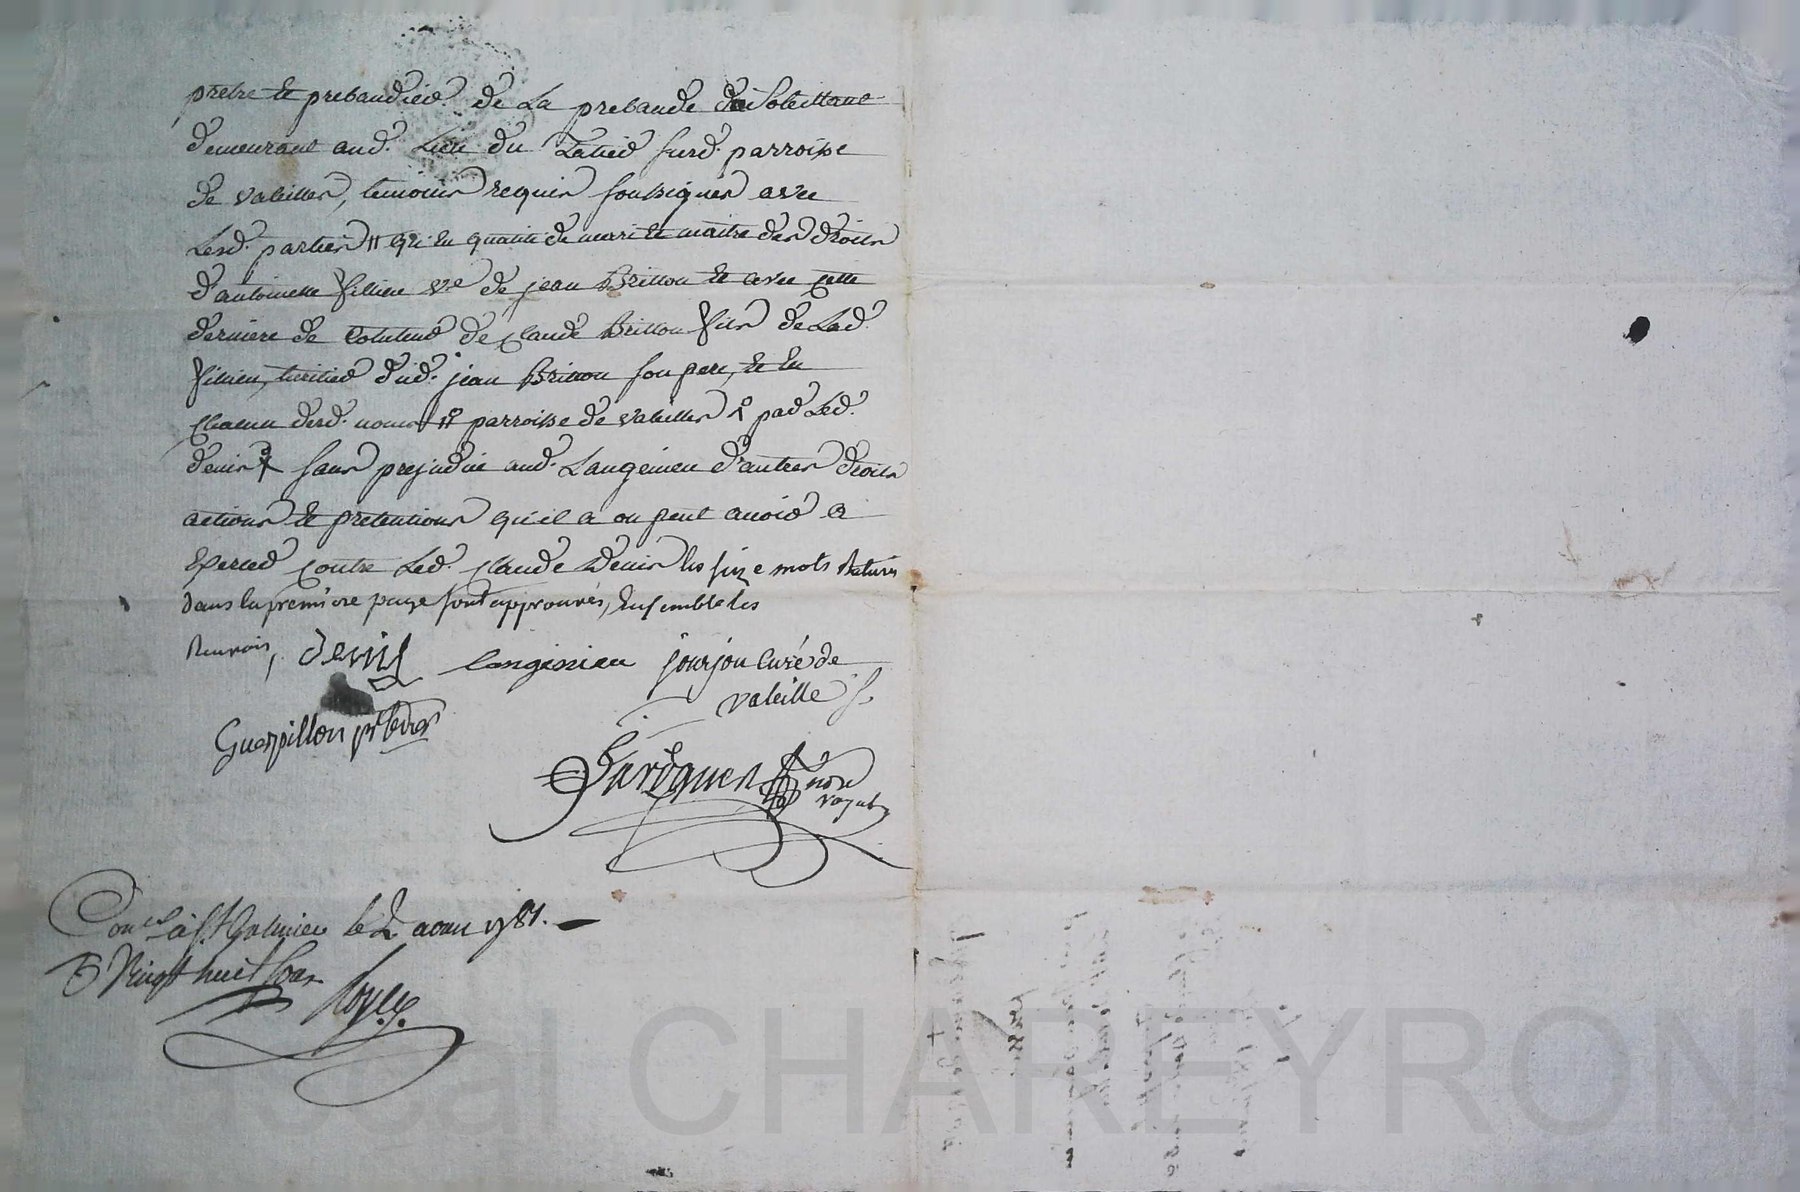 pretre et prebandier de La prebande de Soleillant
demeurant aud. Lieu du Tatier surd. parroisse
de valeilles, temoins requis soussignés avec
Lesd. parties # qu'en qualité de mari et maitre des droits
d'antoinette filieu ve de jean Brillon et avec cette
derniere de Tuteur de Claude Brillon fils de Lad.
filieu, heritier dud. jean Brillon son pere, et en
chacun desd. noms # parroisse de valeilles par Led.
denis sans prejudice aud. Langinieu d'autres droits
actions et pretentions qu'il a ou peut avoir a
Exercer contre Led. Claude denis les seize mots Raturés
dans la premiere page sont approuvés, Ensemble les
Renvois, denis Langinieu jourjon curé de
valeille
Guerpillon ptre
nore
royal
à St Galmier le 2 aoust 1781.
R Vingt huit sols
Pascal CHAREYRON